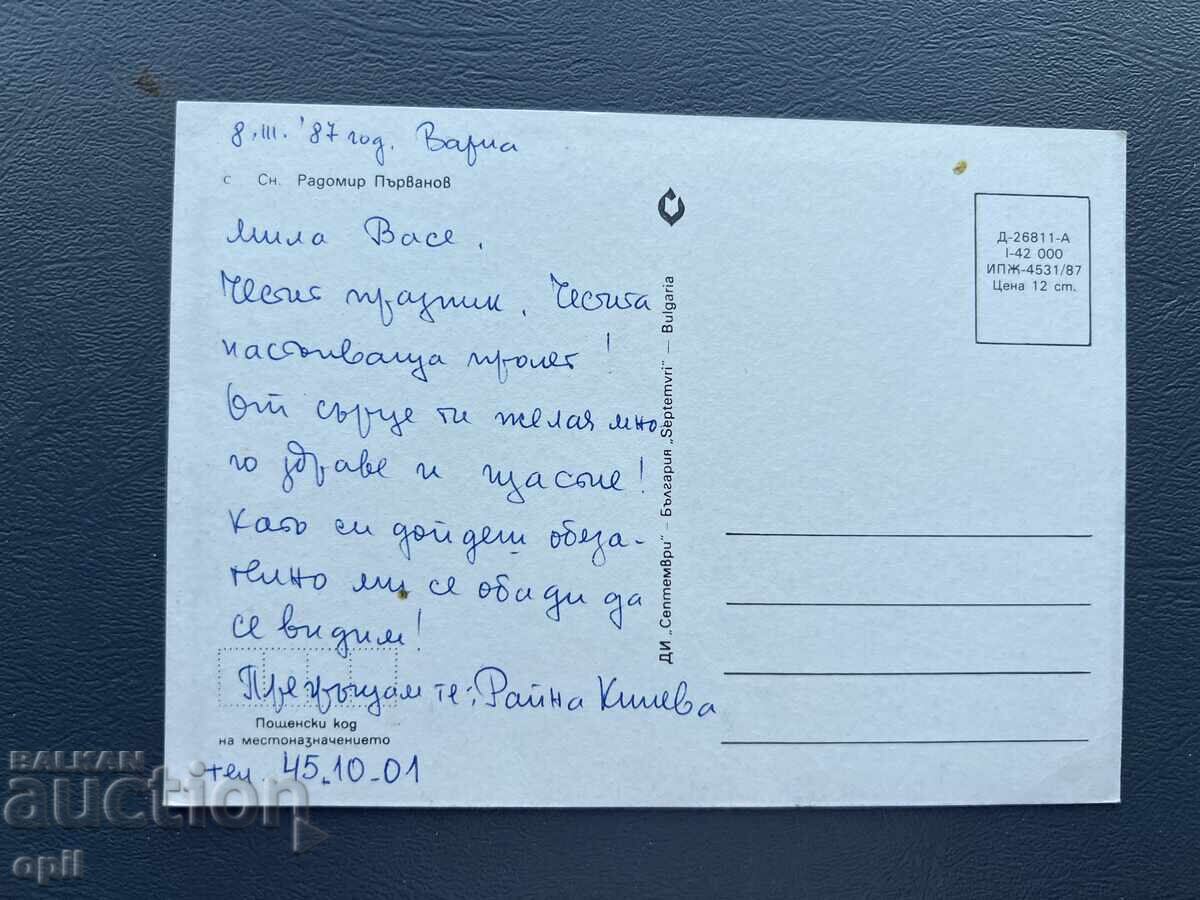 8.III.'87 год. Варна
с Сн. Радомир Първанов
Мила Васе,
Честит празник, Честита
настъпваща пролет!
От сърце ти желая мно-
го здраве и щастие!
Като си дойдеш обеза-
телно ми се обади да
се видим!
Прегръщам те: Райна
Пощенски код
на местоназначението
тел. 45.10-01
ДИ „Септември“ – България „Septemvri“ — Bulgaria
Д-26811-А
I-42 000
ИПЖ-4531/87
Цена 12 ст.
BALKAN
auction
opll